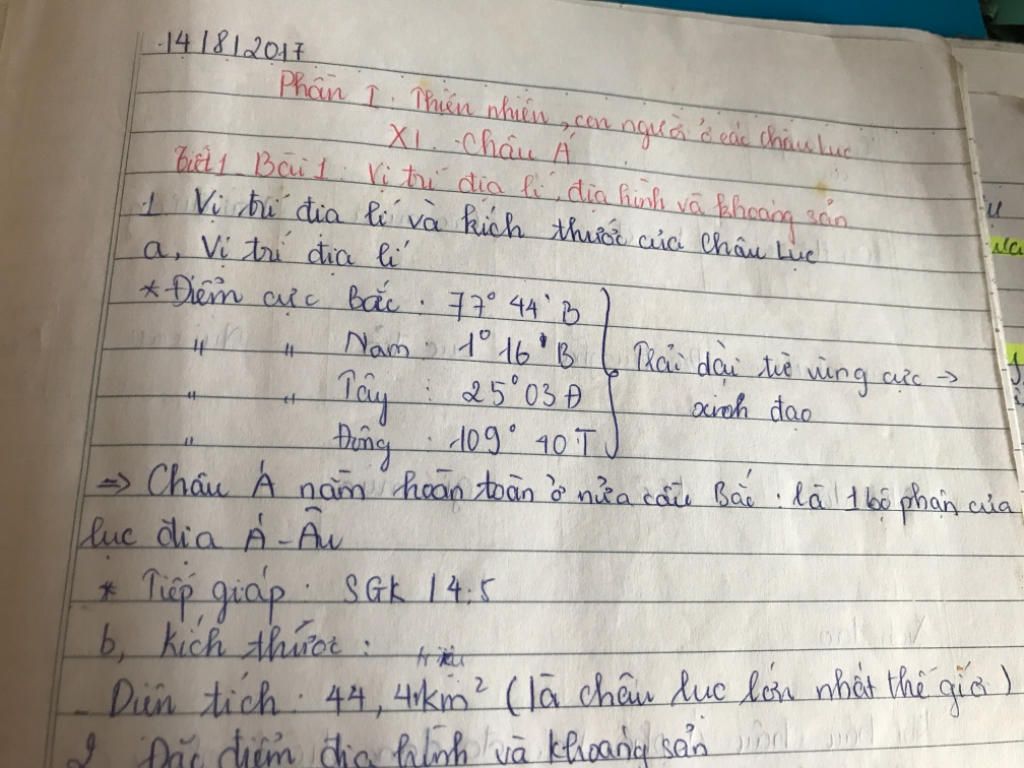 14/8/2017
Phần I. Thiên nhiên, con người ở các châu lục
XI. Châu Á
Tiết 1 Bài 1: Vị trí địa lí, địa hình và khoáng sản
1 Vị trí địa lí và kích thước của châu lục
a, Vị trí địa lí
* Điểm cực Bắc: 77° 44' B
" " Nam: 1° 16' B
" " Tây: 25° 03 Đ
" Đông: 109° 40 T
Trải dài từ vùng cực →
xích đạo
=> Châu Á nằm hoàn toàn ở nửa cầu Bắc: là 1 bộ phận của
lục địa Á-Âu
* Tiếp giáp: SGK / 4;5
b, Kích thước:
- Diện tích: 44,4 km² (là châu lục lớn nhất thế giới)
2 Đặc điểm địa hình và khoáng sản